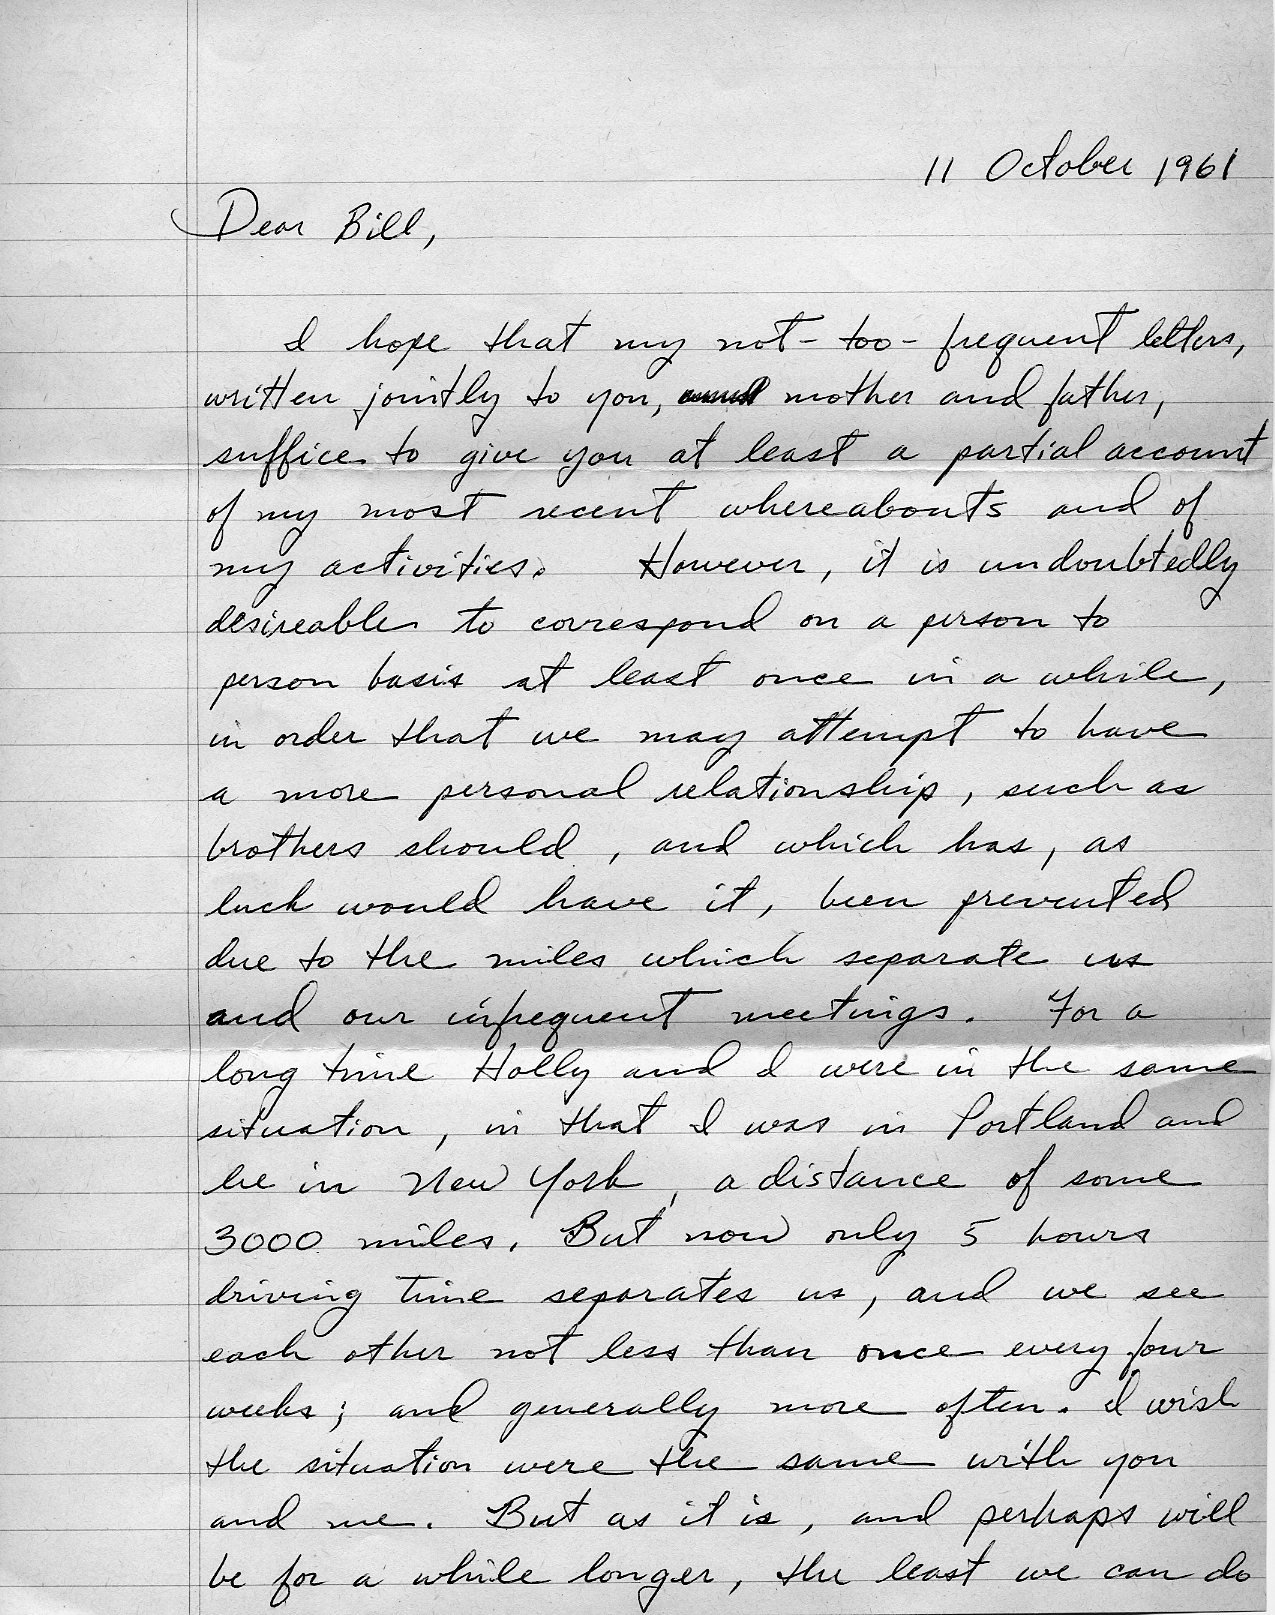 11 October 1961
Dear Bill,
I hope that my not-too-frequent letters,
written jointly to you, mother and father,
suffice to give you at least a partial account
of my most recent whereabouts and of
my activities. However, it is undoubtedly
desireable to correspond on a person to
person basis at least once in a while,
in order that we may attempt to have
a more personal relationship, such as
brothers should, and which has, as
luck would have it, been prevented
due to the miles which separate us
and our infrequent meetings. For a
long time Holly and I were in the same
situation, in that I was in Portland and
he in New York, a distance of some
3000 miles. But now only 5 hours
driving time separates us, and we see
each other not less than once every four
weeks; and generally more often. I wish
the situation were the same with you
and me. But as it is, and perhaps will
be for a while longer, the least we can do